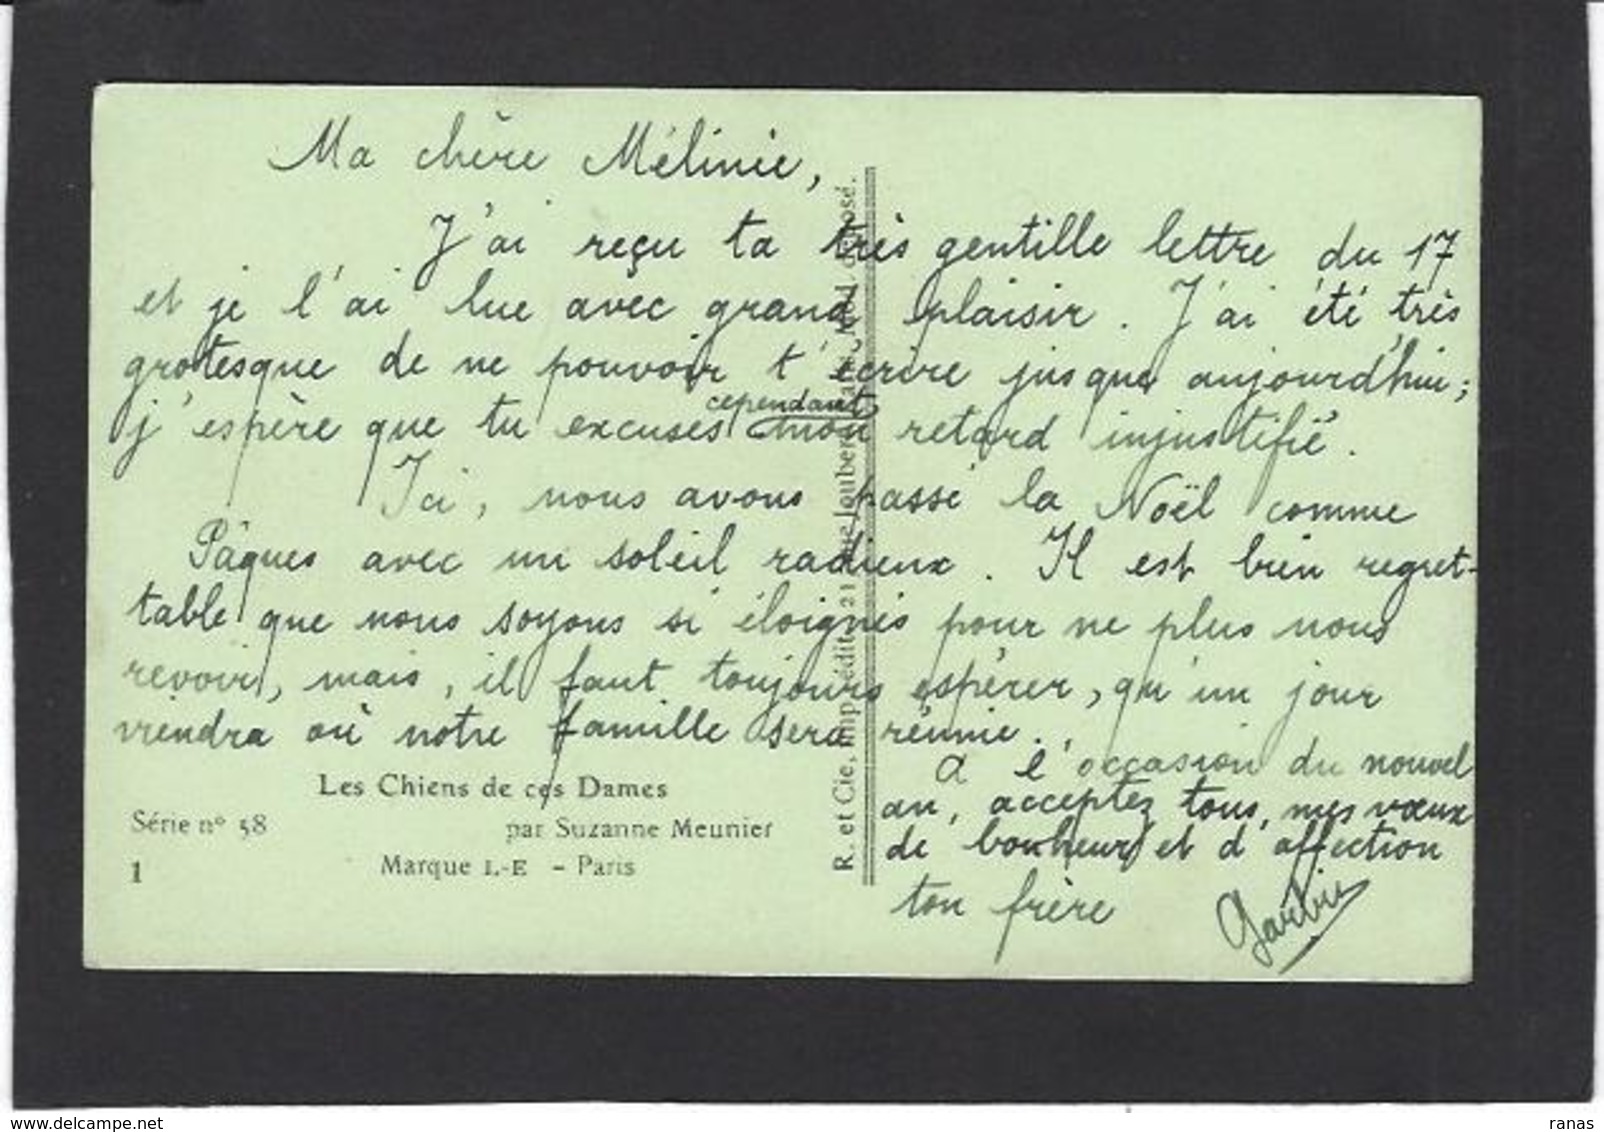 Ma chère Mélinie,
J'ai reçu ta très gentille lettre du 17
et je l'ai lue avec grand plaisir. J'ai été très
grotesque de ne pouvoir t'écrire jusque aujourd'hui ;
cependant
j'espère que tu excuses mon retard injustifié.
Ici, nous avons passé la Noël comme
Pâques avec un soleil radieux. Il est bien regret-
table que nous soyons si éloignés pour ne plus nous
revoir, mais, il faut toujours espérer, qu'un jour
viendra où notre famille sera réunie.
A l'occasion du nouvel
an, acceptez tous, mes vœux
de bonheur et d'affection
ton frère
Les Chiens de ces Dames
Série n° 58
par Suzanne Meunier
1
Marque L-E - Paris
R. et Cie, imp. édit. 21 rue Joubert, Paris, Mod. déposé.
www.delcampe.net
ranas